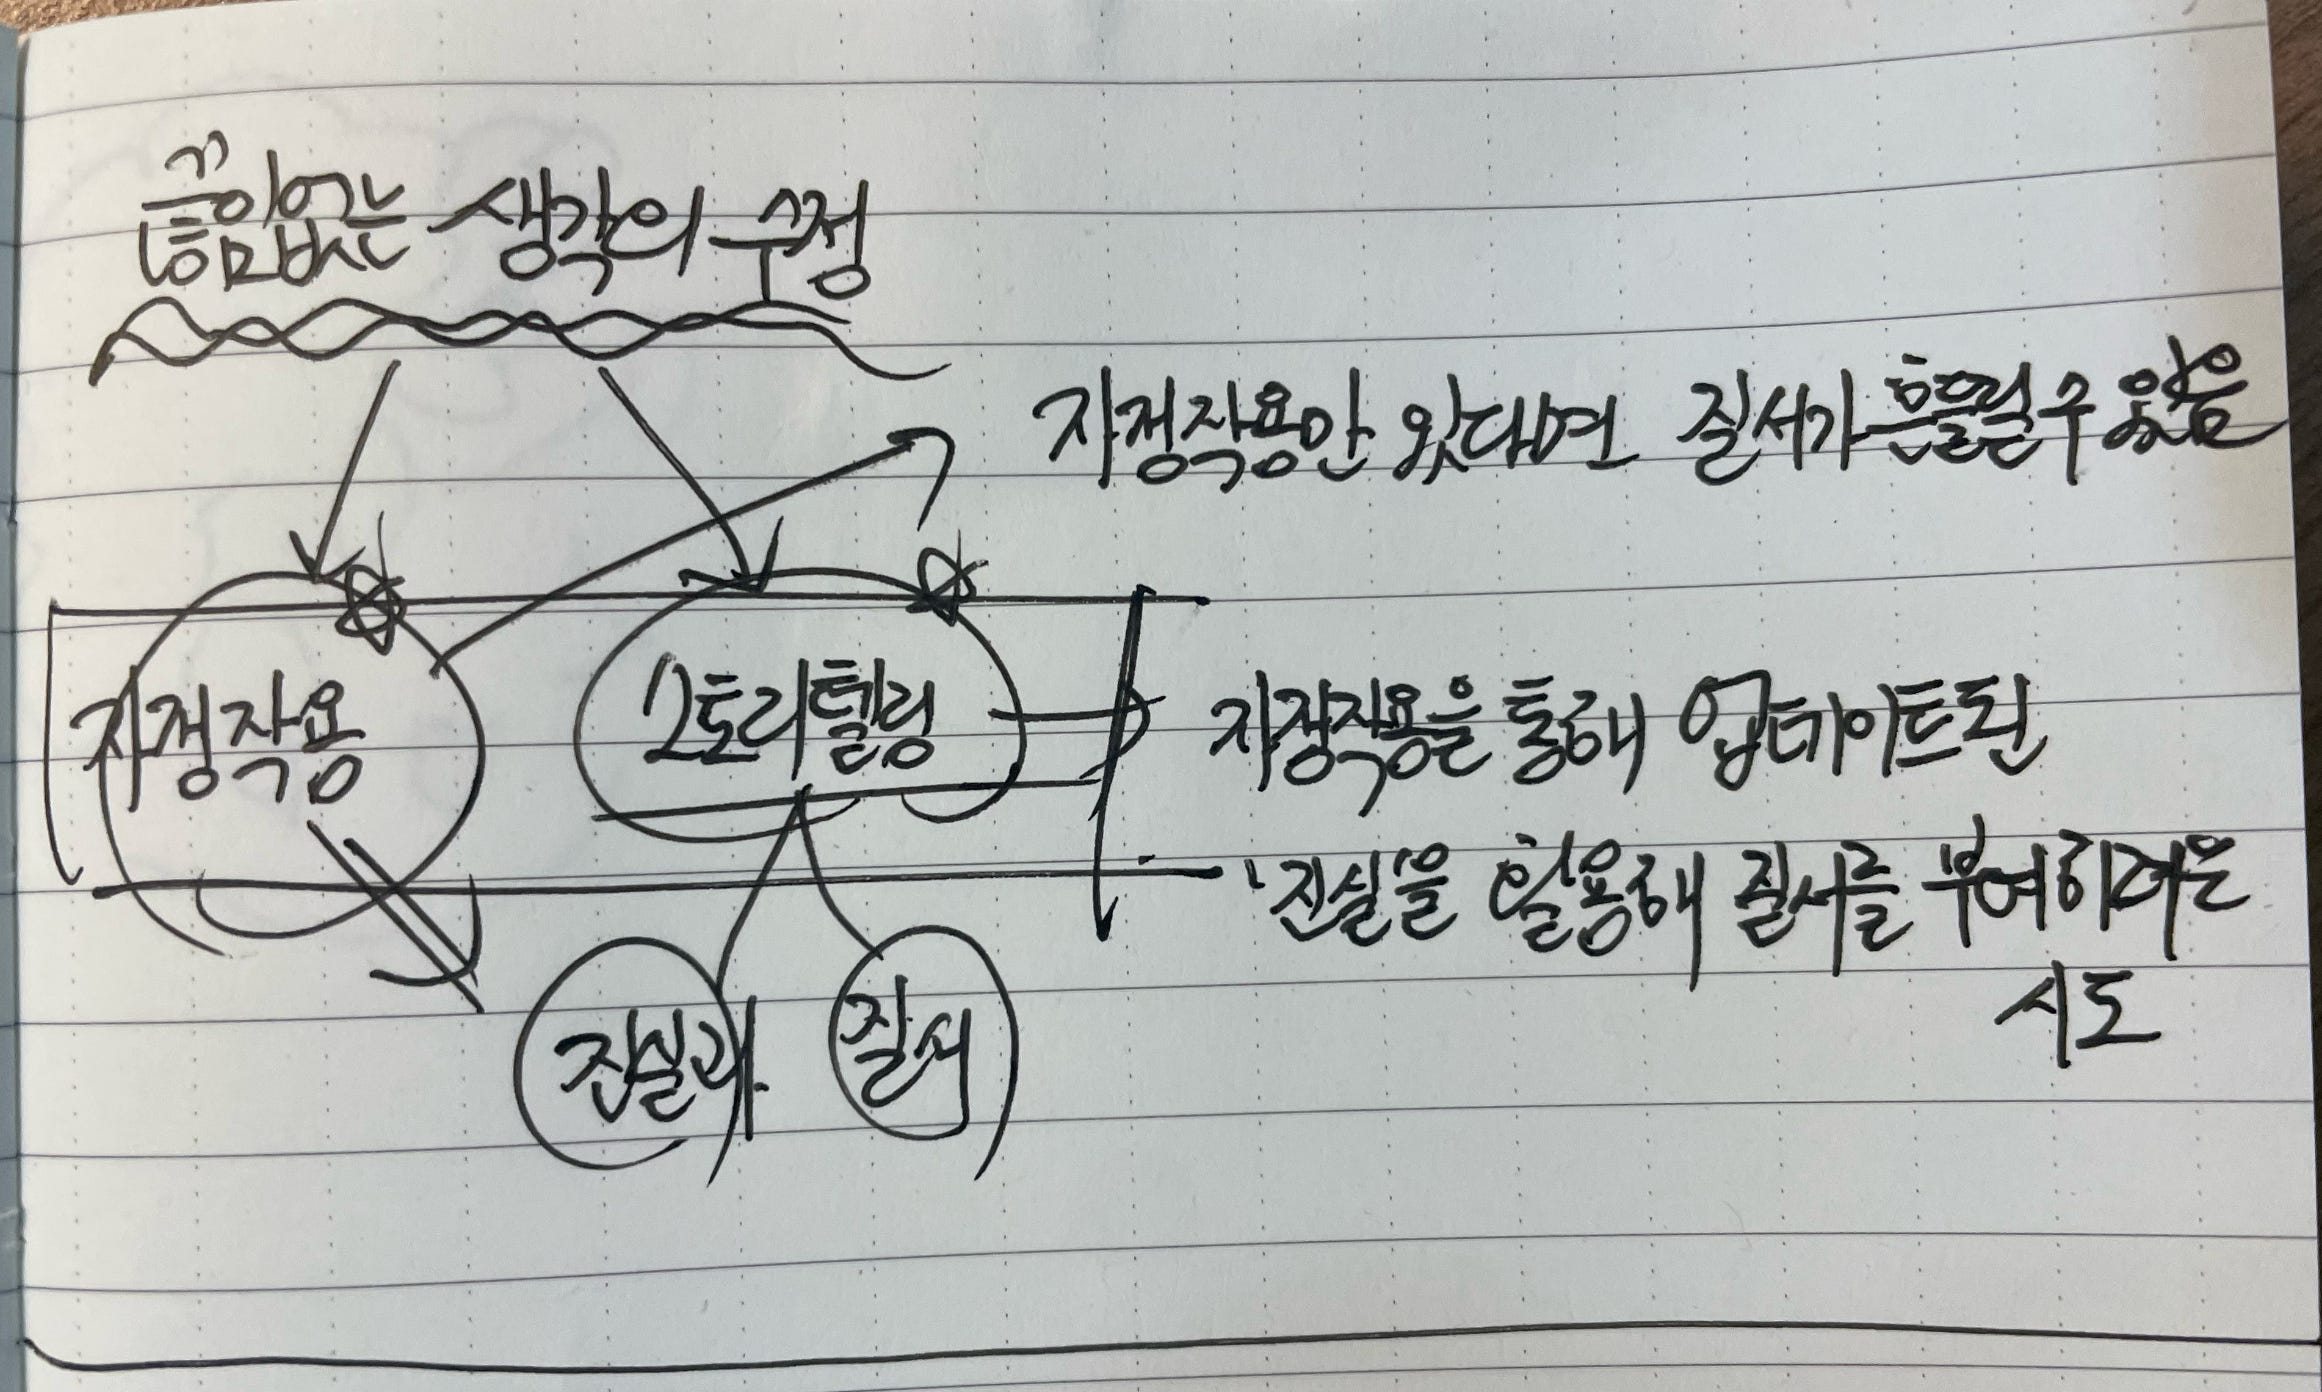 끊임없는 생각의 수정
자정작용만 있다면 질서가 흔들릴 수 있음
자정작용
스토리텔링
자정작용을 통해 업데이트된
'진실'을 활용해 질서를 부여하려는
시도
진실과
질서